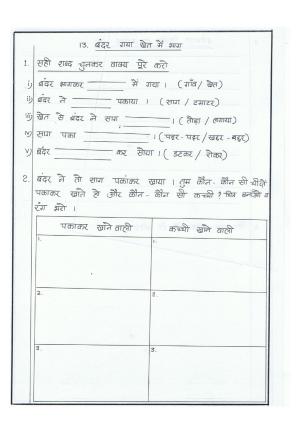 13. बंदर गया खेत में भाग
1. सही शब्द चुनकर वाक्य पूरे करो
i) बंदर भागकर ________ में गया । (गाँव / खेत)
ii) बंदर ने ________ पकाया । (साग / टमाटर)
iii) खेत से बंदर ने साग ________ । (तोड़ा / लगाया)
iv) साग पका ________ । (चट्टर-पट्टर / खद्दर-बद्दर)
v) बंदर ________ कर सोया । (डटकर / रोकर)
2. बंदर ने तो साग पकाकर खाया । तुम कौन-कौन सी चीज़ें
पकाकर खाते हो और कौन-कौन सी कच्ची ? चित्र बनाओ व
रंग भरो ।
पकाकर खाने वाली कच्ची खाने वाली
1. 1.
2. 2.
3. 3.